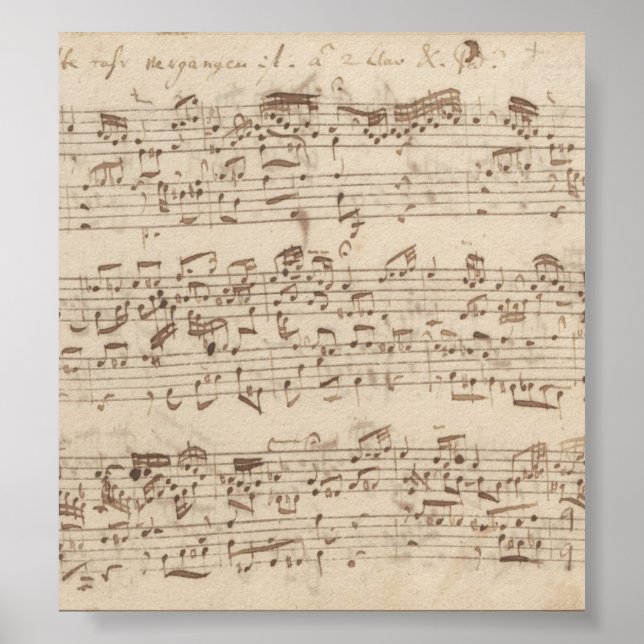 te Jahr vergangen ist. à 2 Clav &. Ped.